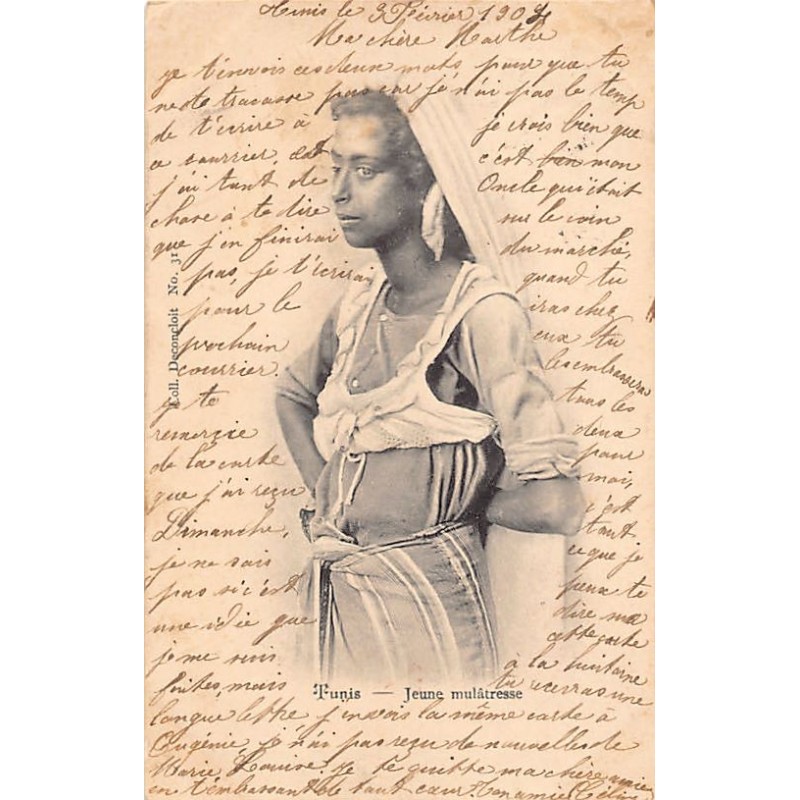 Tunis le 3 Février 190
Ma chère Marthe
je t'envois ces deux mots pour que tu
ne te tracasse pas car je n'ai pas le temp
de t'écrire à
ce courrier, et
j'ai tant de
chose à te dire
que j'en finirai
pas, je t'écrirai
pour le
prochain
courrier.
je te
remercie
de la carte
que j'ai reçu
Dimanche,
je ne sais
pas si c'est
une idie que
je me suis
faites, mais
je crois bien que
c'est bien mon
Oncle qui était
sur le coin
du marché,
quand tu
iras chez
eux tu
les embrassera
tous les
deux
pour
moi,
c'est
tout
ce que je
peux te
dire
cette carte
à la huitaine
tu une
longue lettre j'envois la même carte à
Eugénie, je n'ai pas reçu de nouvelles de
Marie Louise. je te quitte ma chère amie
en t'embrassant de tout cœur. Ton amie
Coll. Deconcloit No. 31
Tunis — Jeune mulâtresse